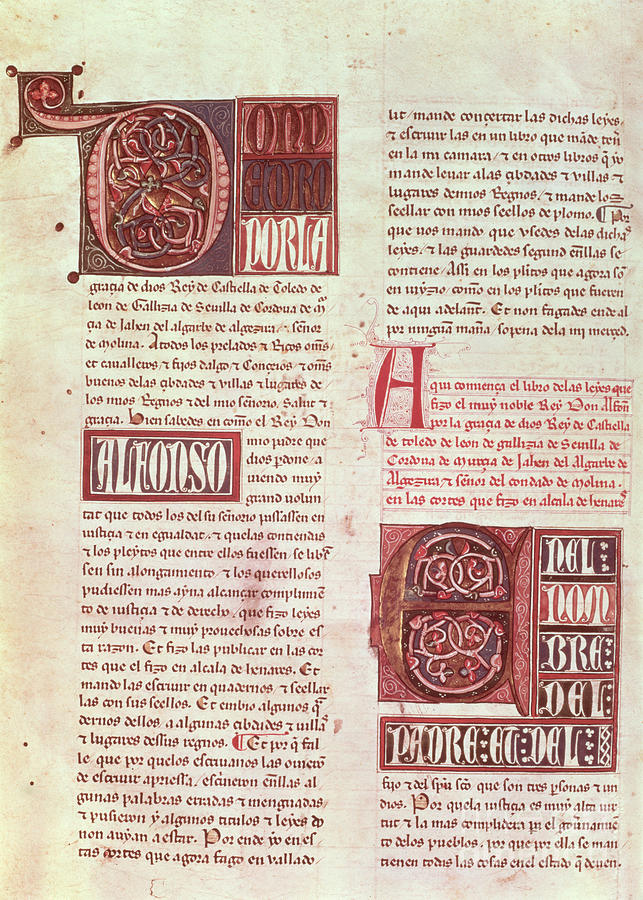 DON
PEDRO
POR LA
gracia de dios Rey de Castiella de Toledo de
leon de Gallizia de Seuilla de Cordoua de mᷓ
çia de Jahen del algarbe de algezira / señor
de molina. Atodos los prelados & Ricos oms̃
et caualleros & fijos dalgo & Conceios & oms̃
buenos delas çibdades & villas & lugares de
los mios Regnos & del mio señorio. Salut &
gracia. Bien sabedes en com̃o el Rey Don
ALFONSO
mio padre que
dios p̃done / a
uiendo muy
grand volun
tat que todos los del su señorio passassen en
iustiçia & en egualdat / & que las contiendas
& los pleytos que entre ellos fuessen / se libra
sen sin alongamiento / & los querellosos
pudiessen mas ayna alcançar complimie᷈
to de iustiçia & de derecho / que fizo leyes
muy buenas & muy prouechosas sobre es
ta razon. Et fizo las publicar en las cor
tes que el fizo en alcala de henares. Et
mando las escriuir en quadernos / & seellar
las con sus seellos. Et enbio algunos q̃
dernos dellos / a algunas çibdades & villas
& lugares de sus regnos. ¶Et por q̃ falle
que por quelos escriuanos las ouieron
de escriuir apriessa / escriuieron en ellas al
gunas palabras erradas & menguadas /
& pusieron y algunos titulos & leyes do
non auyan a estar. Por ende yo en es
tas cortes que agora fago en vallado
lit / mande conçertar las dichas leyes /
& escriuir las en un libro que mãde ten̄
en la mi camara / & en otros libros q̃ yo
mande leuar alas çibdades & villas &
lugares delos mios Regnos / & mande los
seellar con mios seellos de plomo. ¶Por
que uos mando que vsedes delas dichas
leyes / & las guardedes segund en ellas se
contiene / Assi en los pleitos que agora so᷈
en iuyzio / com̃o en los pleitos que fueren
de aqui adelant̃. Et non fagades ende al
por ninguna mañ̃a / so pena dela mi merçed.
Aqui comiença el libro delas leyes que
fizo el muy noble Rey Don Alfon̄
por la gracia de dios Rey de Castiella
de toledo de leon de gallizia de Seuilla de
Cordoua de Murçia de Jahen del Algarbe de
Algezira / & señor del condado de molina.
en las cortes que fizo en alcala de henares
EN EL
NOM
BRE:
DEL
PADRE: ET: DEL:
fijo & del sp̃u sc̃o que son tres p̃sonas & un
dios. Por quela iustiçia es muy alta uir
tut & la mas complidera pa el gou̾namie᷈
to delos pueblos / por que por ella se man
tienen todas las cosas en el estado q̃ deuen.